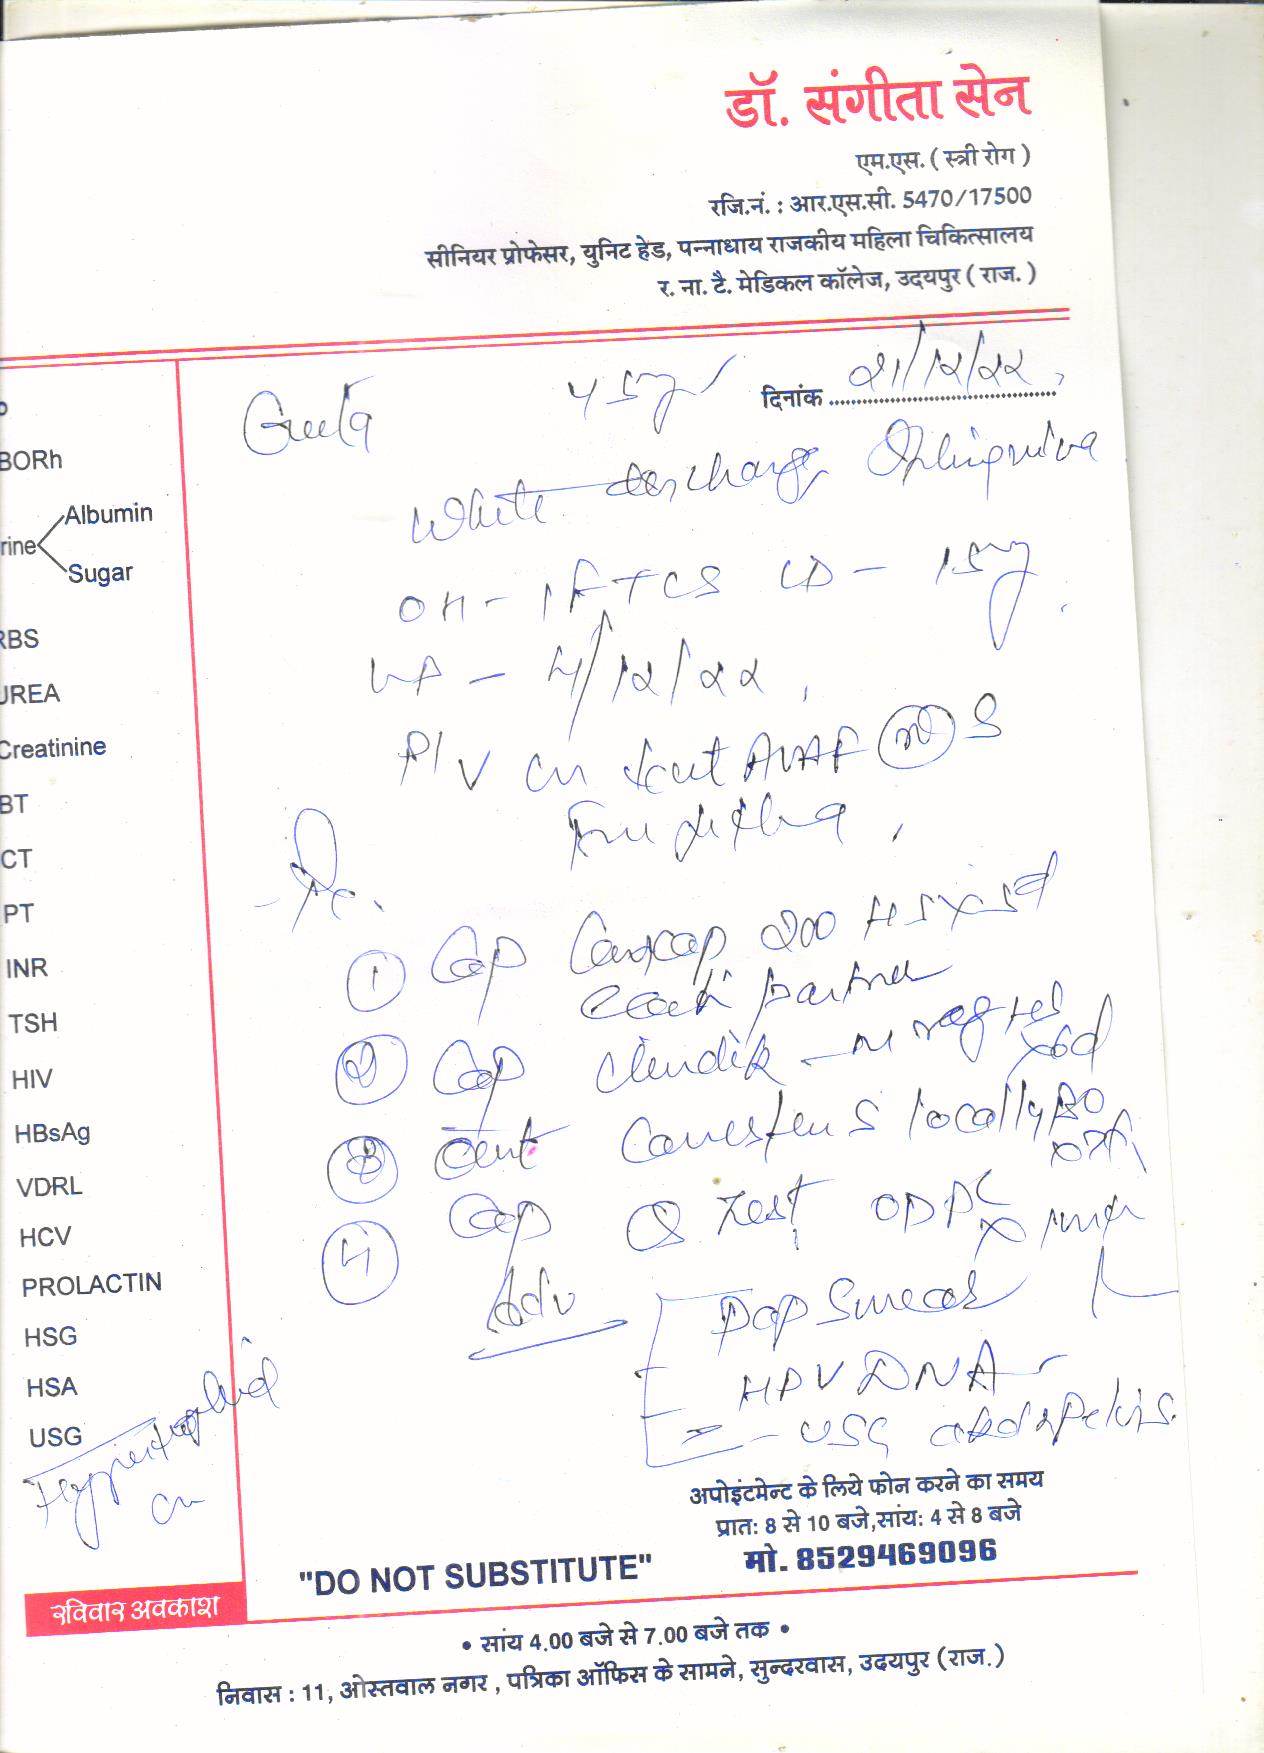 डॉ. संगीता सेन
एम.एस. ( स्त्री रोग )
रजि.नं. : आर.एस.सी. 5470/17500
सीनियर प्रोफेसर, युनिट हेड, पन्नाधाय राजकीय महिला चिकित्सालय
र. ना. टै. मेडिकल कॉलेज, उदयपुर ( राज. )
दिनांक 21/12/22
Geeta 45y
White discharge
OH - 1FTCS LD - 15y
LMP - 4/12/22
P/V
Fornix
BORh
Albumin
rine
Sugar
RBS
UREA
Creatinine
BT
CT
PT
INR
TSH
HIV
HBsAg
VDRL
HCV
PROLACTIN
HSG
HSA
USG
Hypertrophied
cx
Rx.
1 Cap Canxcap 200 HS x 5d
each partner
2 Cap Clindik-M vag HS
x 6d
3 Oint Canesten S locally BD
4 Cap Q Zest OD PC
Adv
Pap Smear
HPV DNA
- USG abd & pelvis.
अपोइंटमेन्ट के लिये फोन करने का समय
प्रात: 8 से 10 बजे,सांय: 4 से 8 बजे
मो. 8529469096
"DO NOT SUBSTITUTE"
रविवार अवकाश
• सांय 4.00 बजे से 7.00 बजे तक •
निवास : 11, ओस्तवाल नगर , पत्रिका ऑफिस के सामने, सुन्दरवास, उदयपुर (राज.)